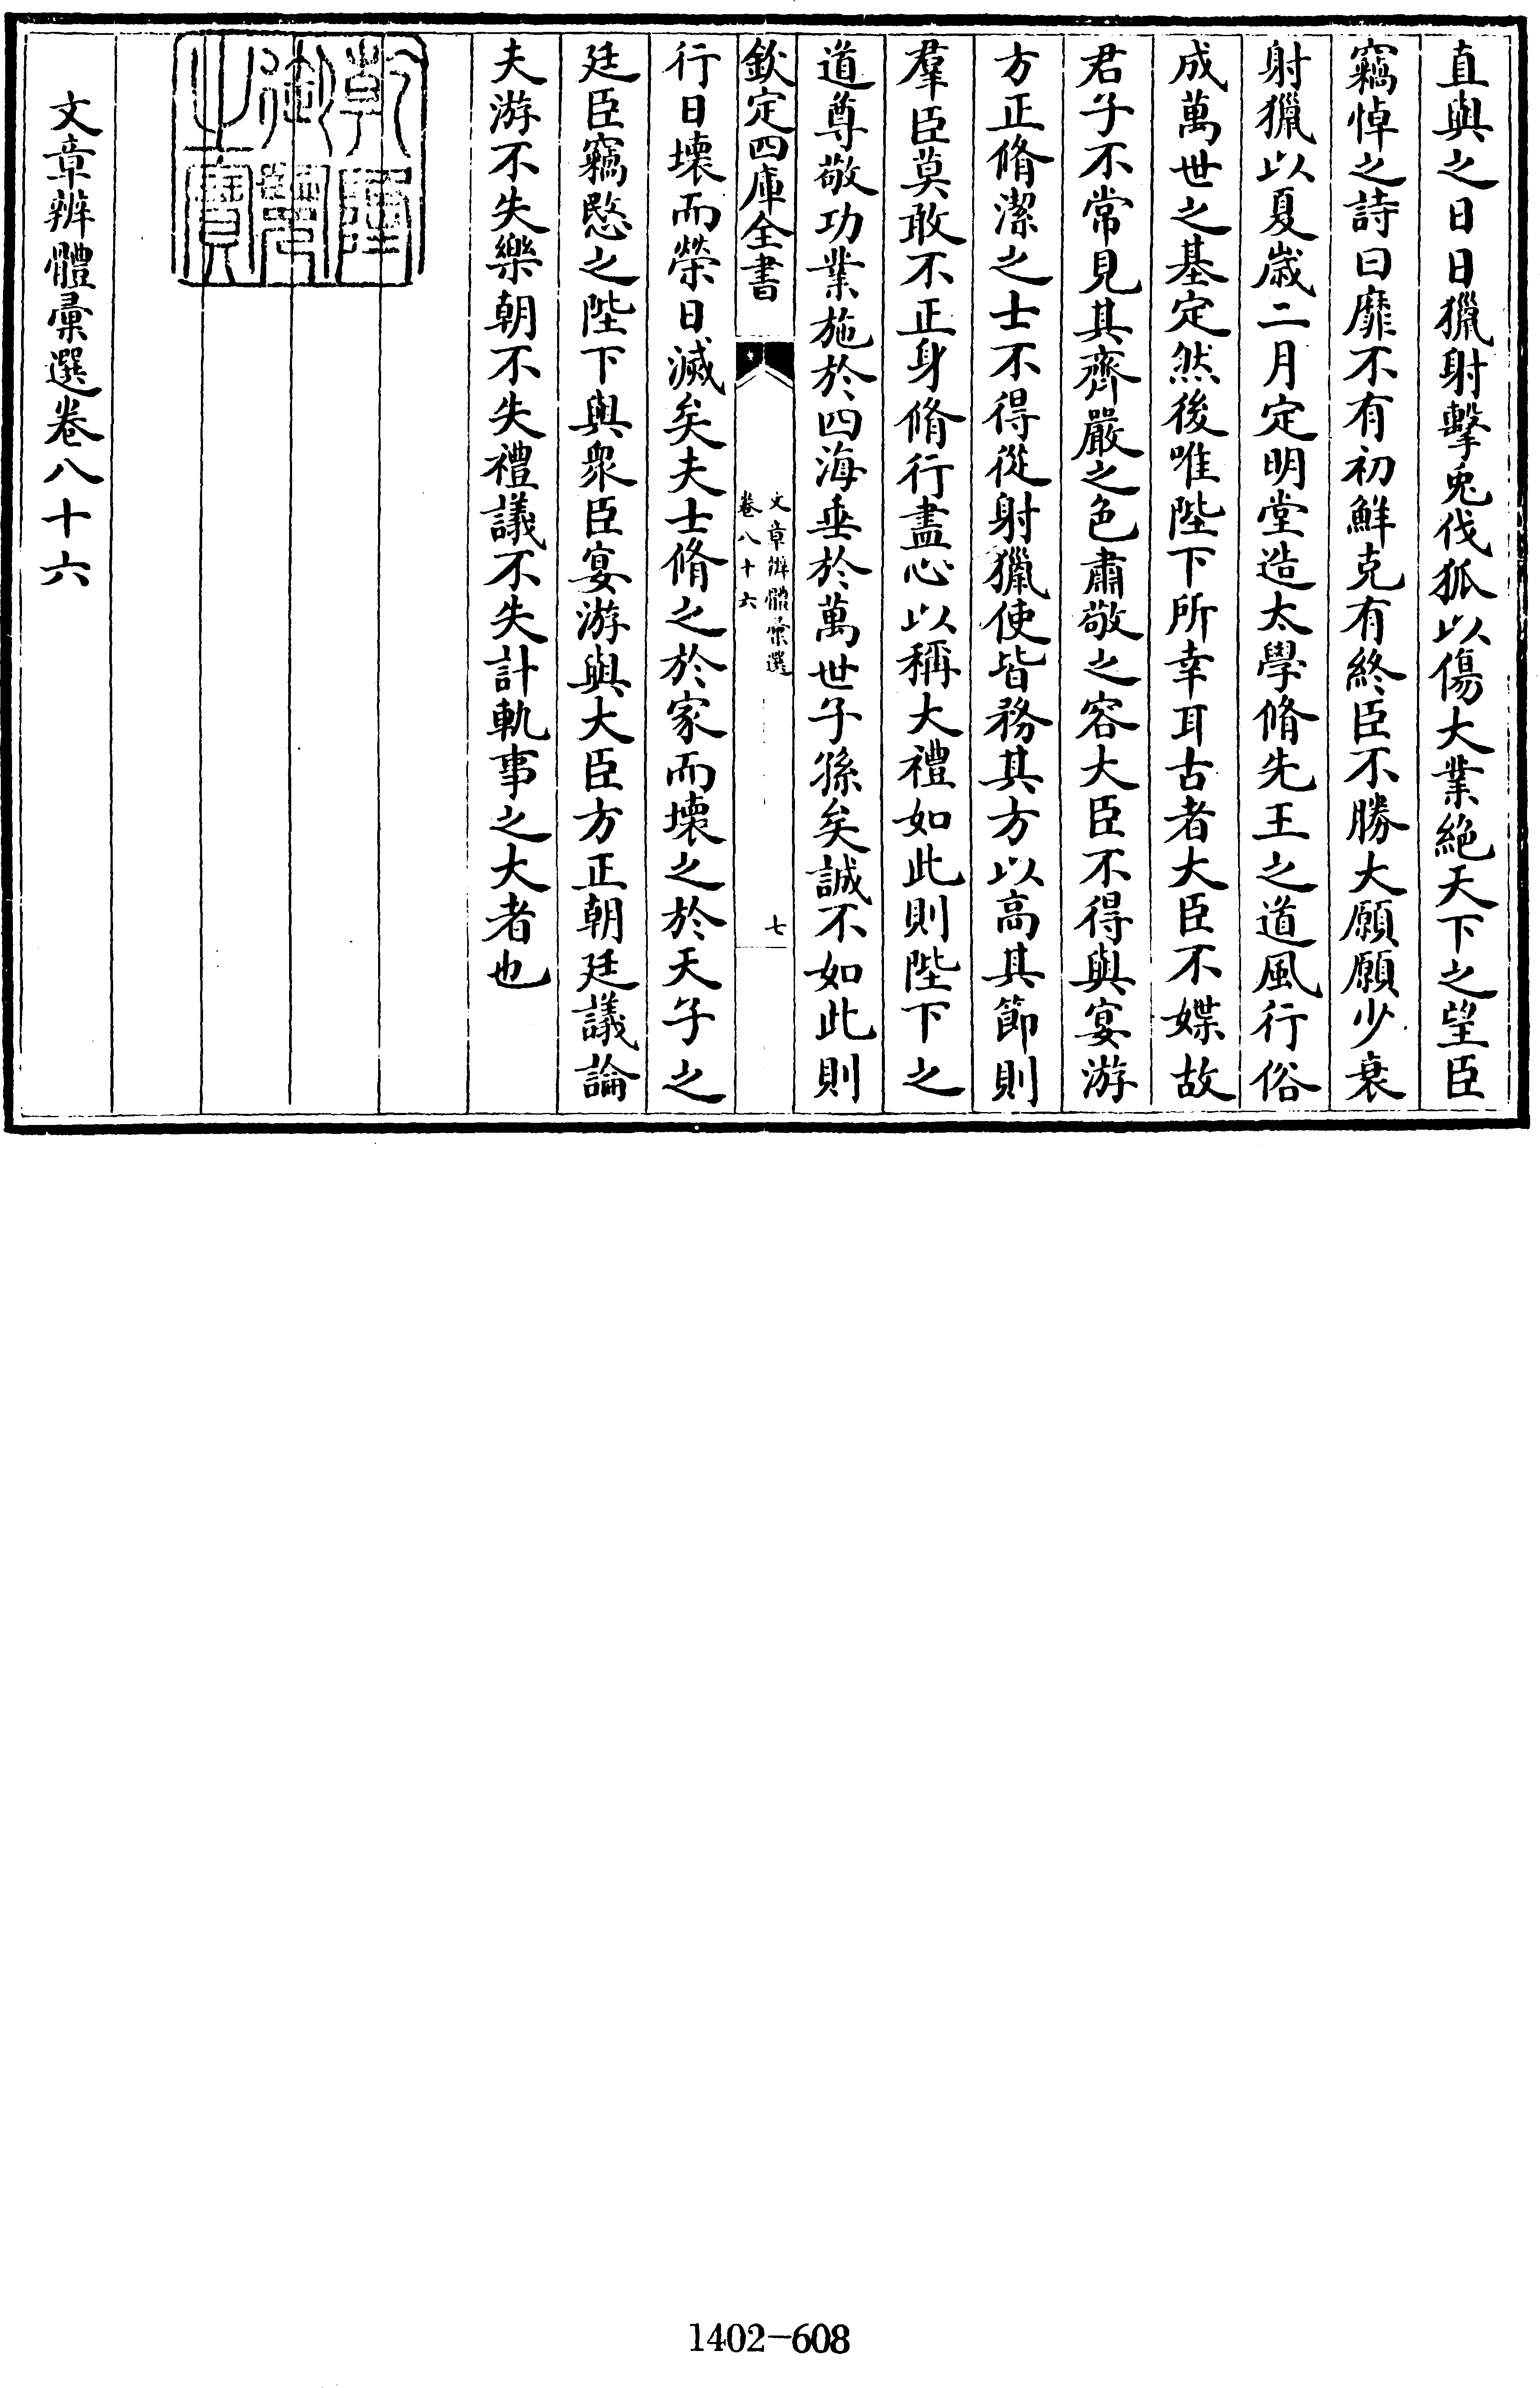 直與之日日獵射擊兎伐狐以傷大業絶天下之望臣
竊悼之詩曰靡不有初鮮克有終臣不勝大願願少衰
射獵以夏歲二月定明堂造太學脩先王之道風行俗
成萬世之基定然後唯陛下所幸耳古者大臣不媟故
君子不常見其齊嚴之色肅敬之容大臣不得與宴游
方正脩潔之士不得從射獵使皆務其方以高其節則
羣臣莫敢不正身脩行盡心以稱大禮如此則陛下之
道尊敬功業施於四海垂於萬世子孫矣誠不如此則
欽定四庫全書
文章辨體彙選
卷八十六
七
行日壞而榮日滅矣夫士脩之於家而壞之於天子之
廷臣竊愍之陛下與衆臣宴游與大臣方正朝廷議論
夫游不失樂朝不失禮議不失計軌事之大者也
乾隆
御覽
之寶
文章辨體彙選卷八十六
1402-608